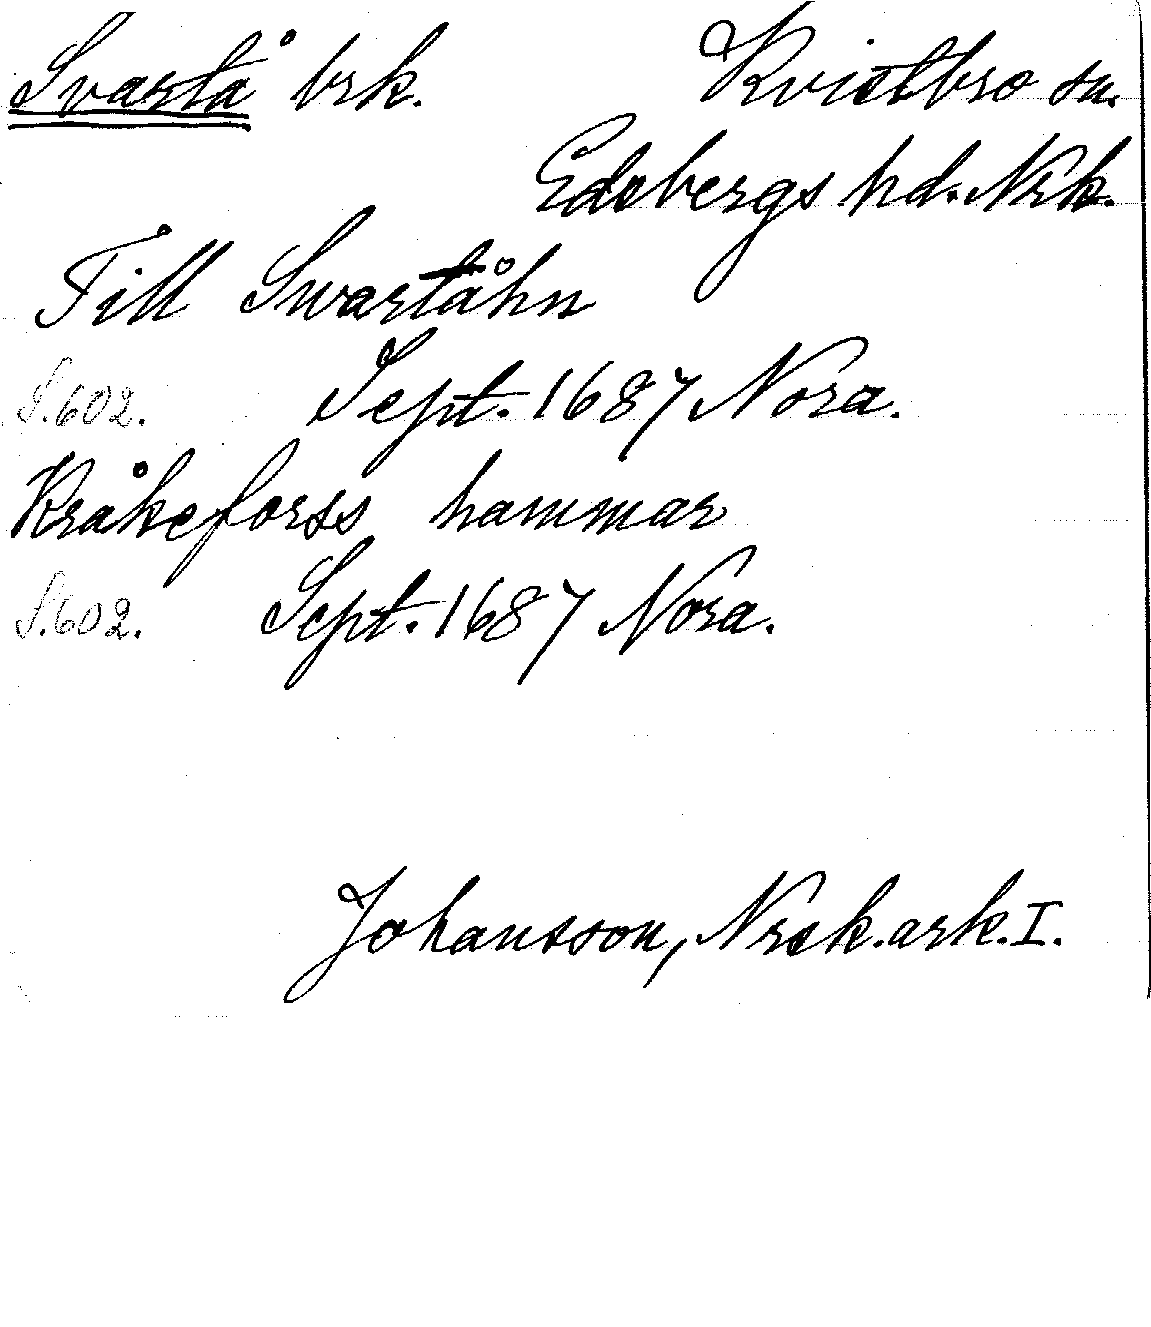 Svartå brk. Kvistbro sn.
Edsbergs hd. Nrk.
Till Swartåhn
S.602. Sept. 1687 Nora.
Kråkeforss hammar
S.602. Sept. 1687 Nora.
Johansson, Nrsk.ark.I.